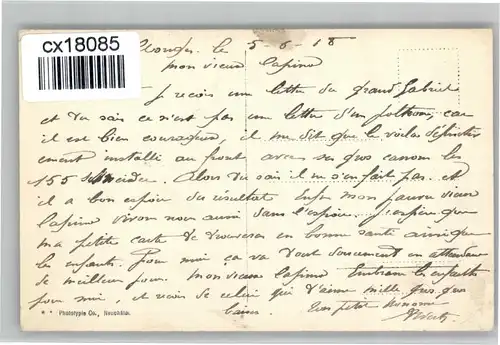 cx18085
le 5-6-18
mon vieux Lapino
Je reçois une lettre du grand Gabriel
et tu sais ce n'est pas une lettre d'un poltron, car
il est bien courageux, il me dit que le voila définitiv
ement installé au front avec ses gros canons les
155 Alors tu sais il ne s'en fait pas et
il a bon espoir du résultat Enfin mon pauvre vieux
Lapino vivons nous aussi dans l'espoir J'espère que
ma petite carte te trouvera en bonne santé ainsi que
les enfants. Pour moi ça va tout doucement en attendant
de meilleur jour. mon vieux Lapino Embrasse les enfants
pour moi, et reçois de celui qui t'aime mille gros gros
baisers Ton petit
Phototypie Co., Neuchâtel